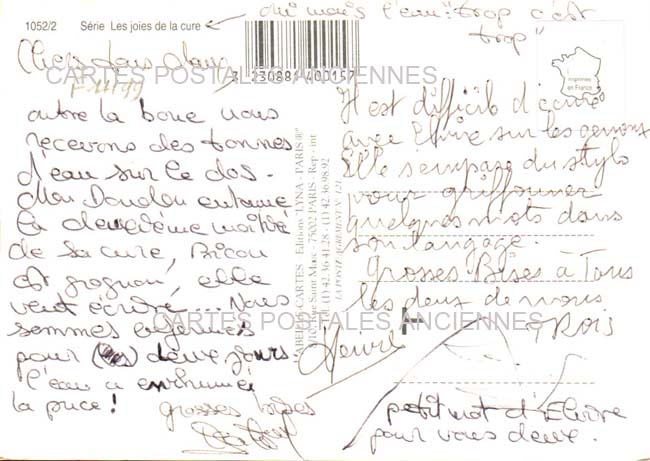 1052/2 Série Les joies de la cure
oui mais l'eau "trop c'est
trop"
3 230881 400157
Imprimée
en France
CARTES POSTALES ANCIENNES
Chers tous deux
outre la boue nous
recevons des tonnes
d'eau sur le dos.
Mon Doudou entame
la deuxième moitié
de sa cure,
est grognon, elle
veut écrire... Nous
sommes
pour deux jours
l'eau a enrhumé
la puce!
grosses bises
Editions "LYNA - PARIS"
Rue Saint Marc - 75002 PARIS - Rep : int
Tél. (1) 42.36.41.28 - (1) 42.36.89.92
Il est difficile d'écrire
avec Elvire sur les genoux
Elle s'empare du stylo
pour griffonner
quelques mots dans
son langage.
Grosses Bises à Tous
les deux de nous
TROIS
CARTES POSTALES ANCIENNES
petit mot d'Elvire
pour vous deux.